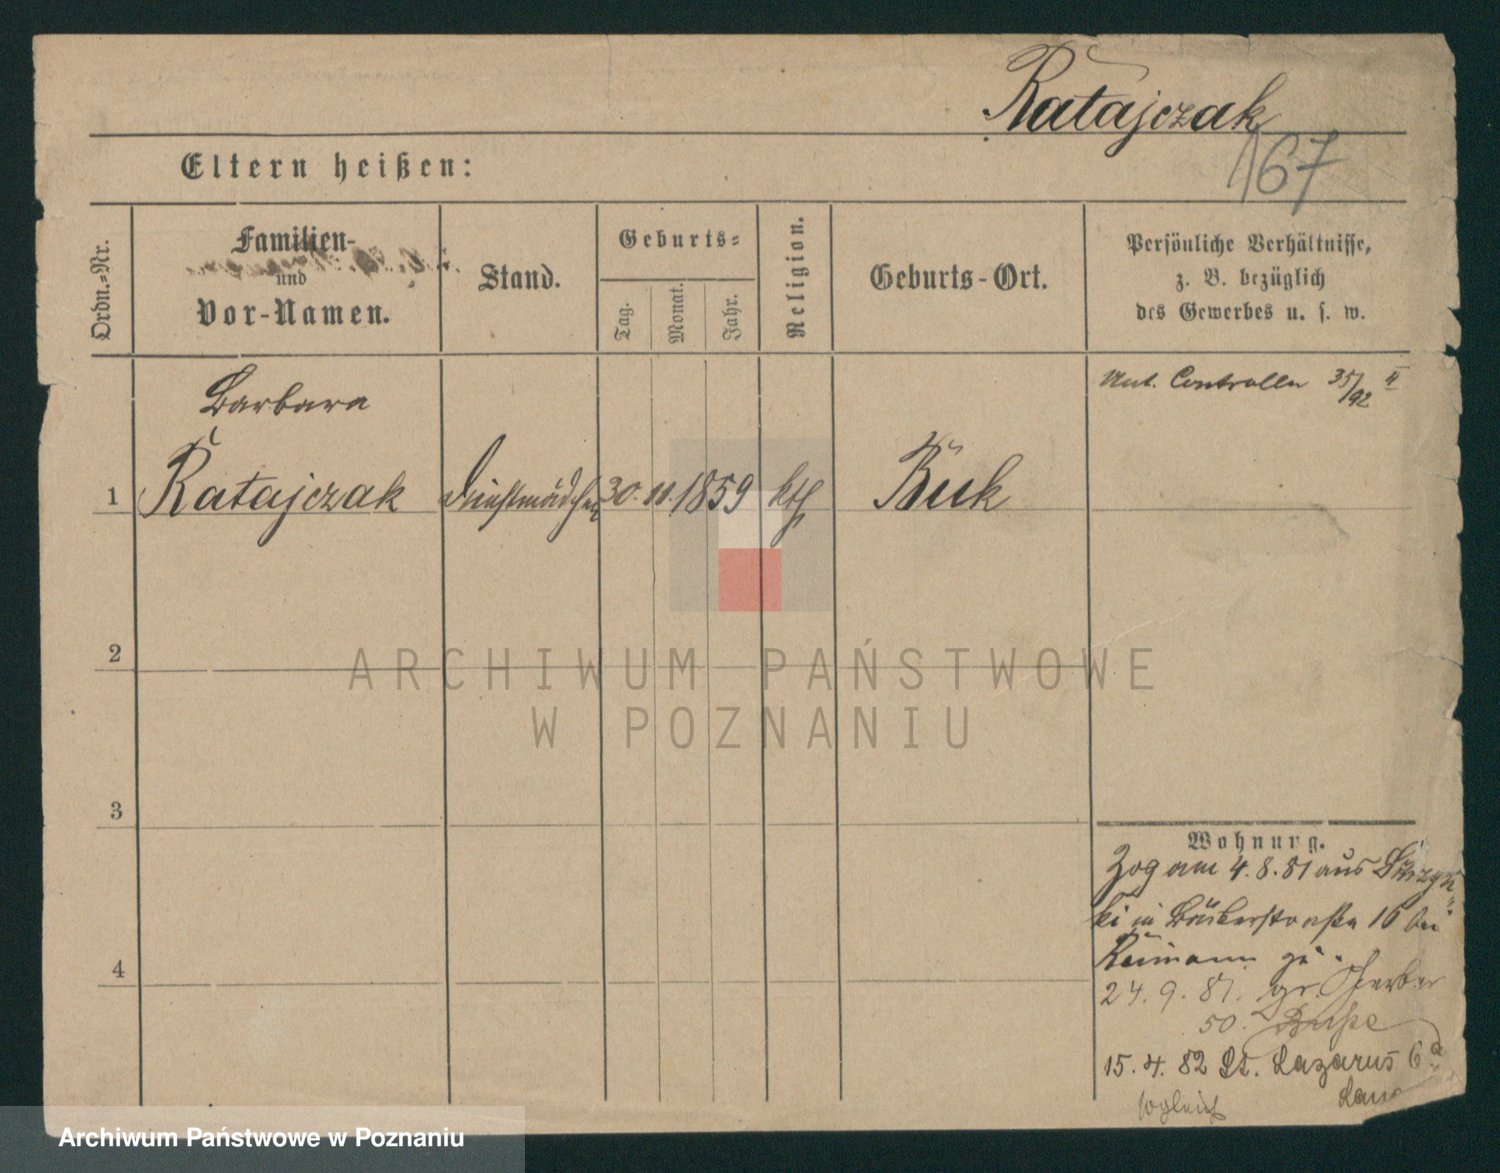 Ratajczak
167
Eltern heißen:
Ordn.-Nr.
Familien-
und
Vor-Namen.
Stand.
Geburts-
Tag.
Monat.
Jahr.
Religion.
Geburts-Ort.
Persönliche Verhältnisse,
z. B. bezüglich
des Gewerbes u. s. w.
Controlle 35/92 II
Barbara
1 Ratajczak Dienstmädchen 30. 11. 1859 kth Buk
2
3
4
Wohnung.
Zog am 4.8.81 aus
ki in Bäckerstraße 16 bei
Reimann zu.
24.9.81. gr. Gerber
50.
15.4.82 St. Lazarus 6
ARCHIWUM PAŃSTWOWE
W POZNANIU
Archiwum Państwowe w Poznaniu